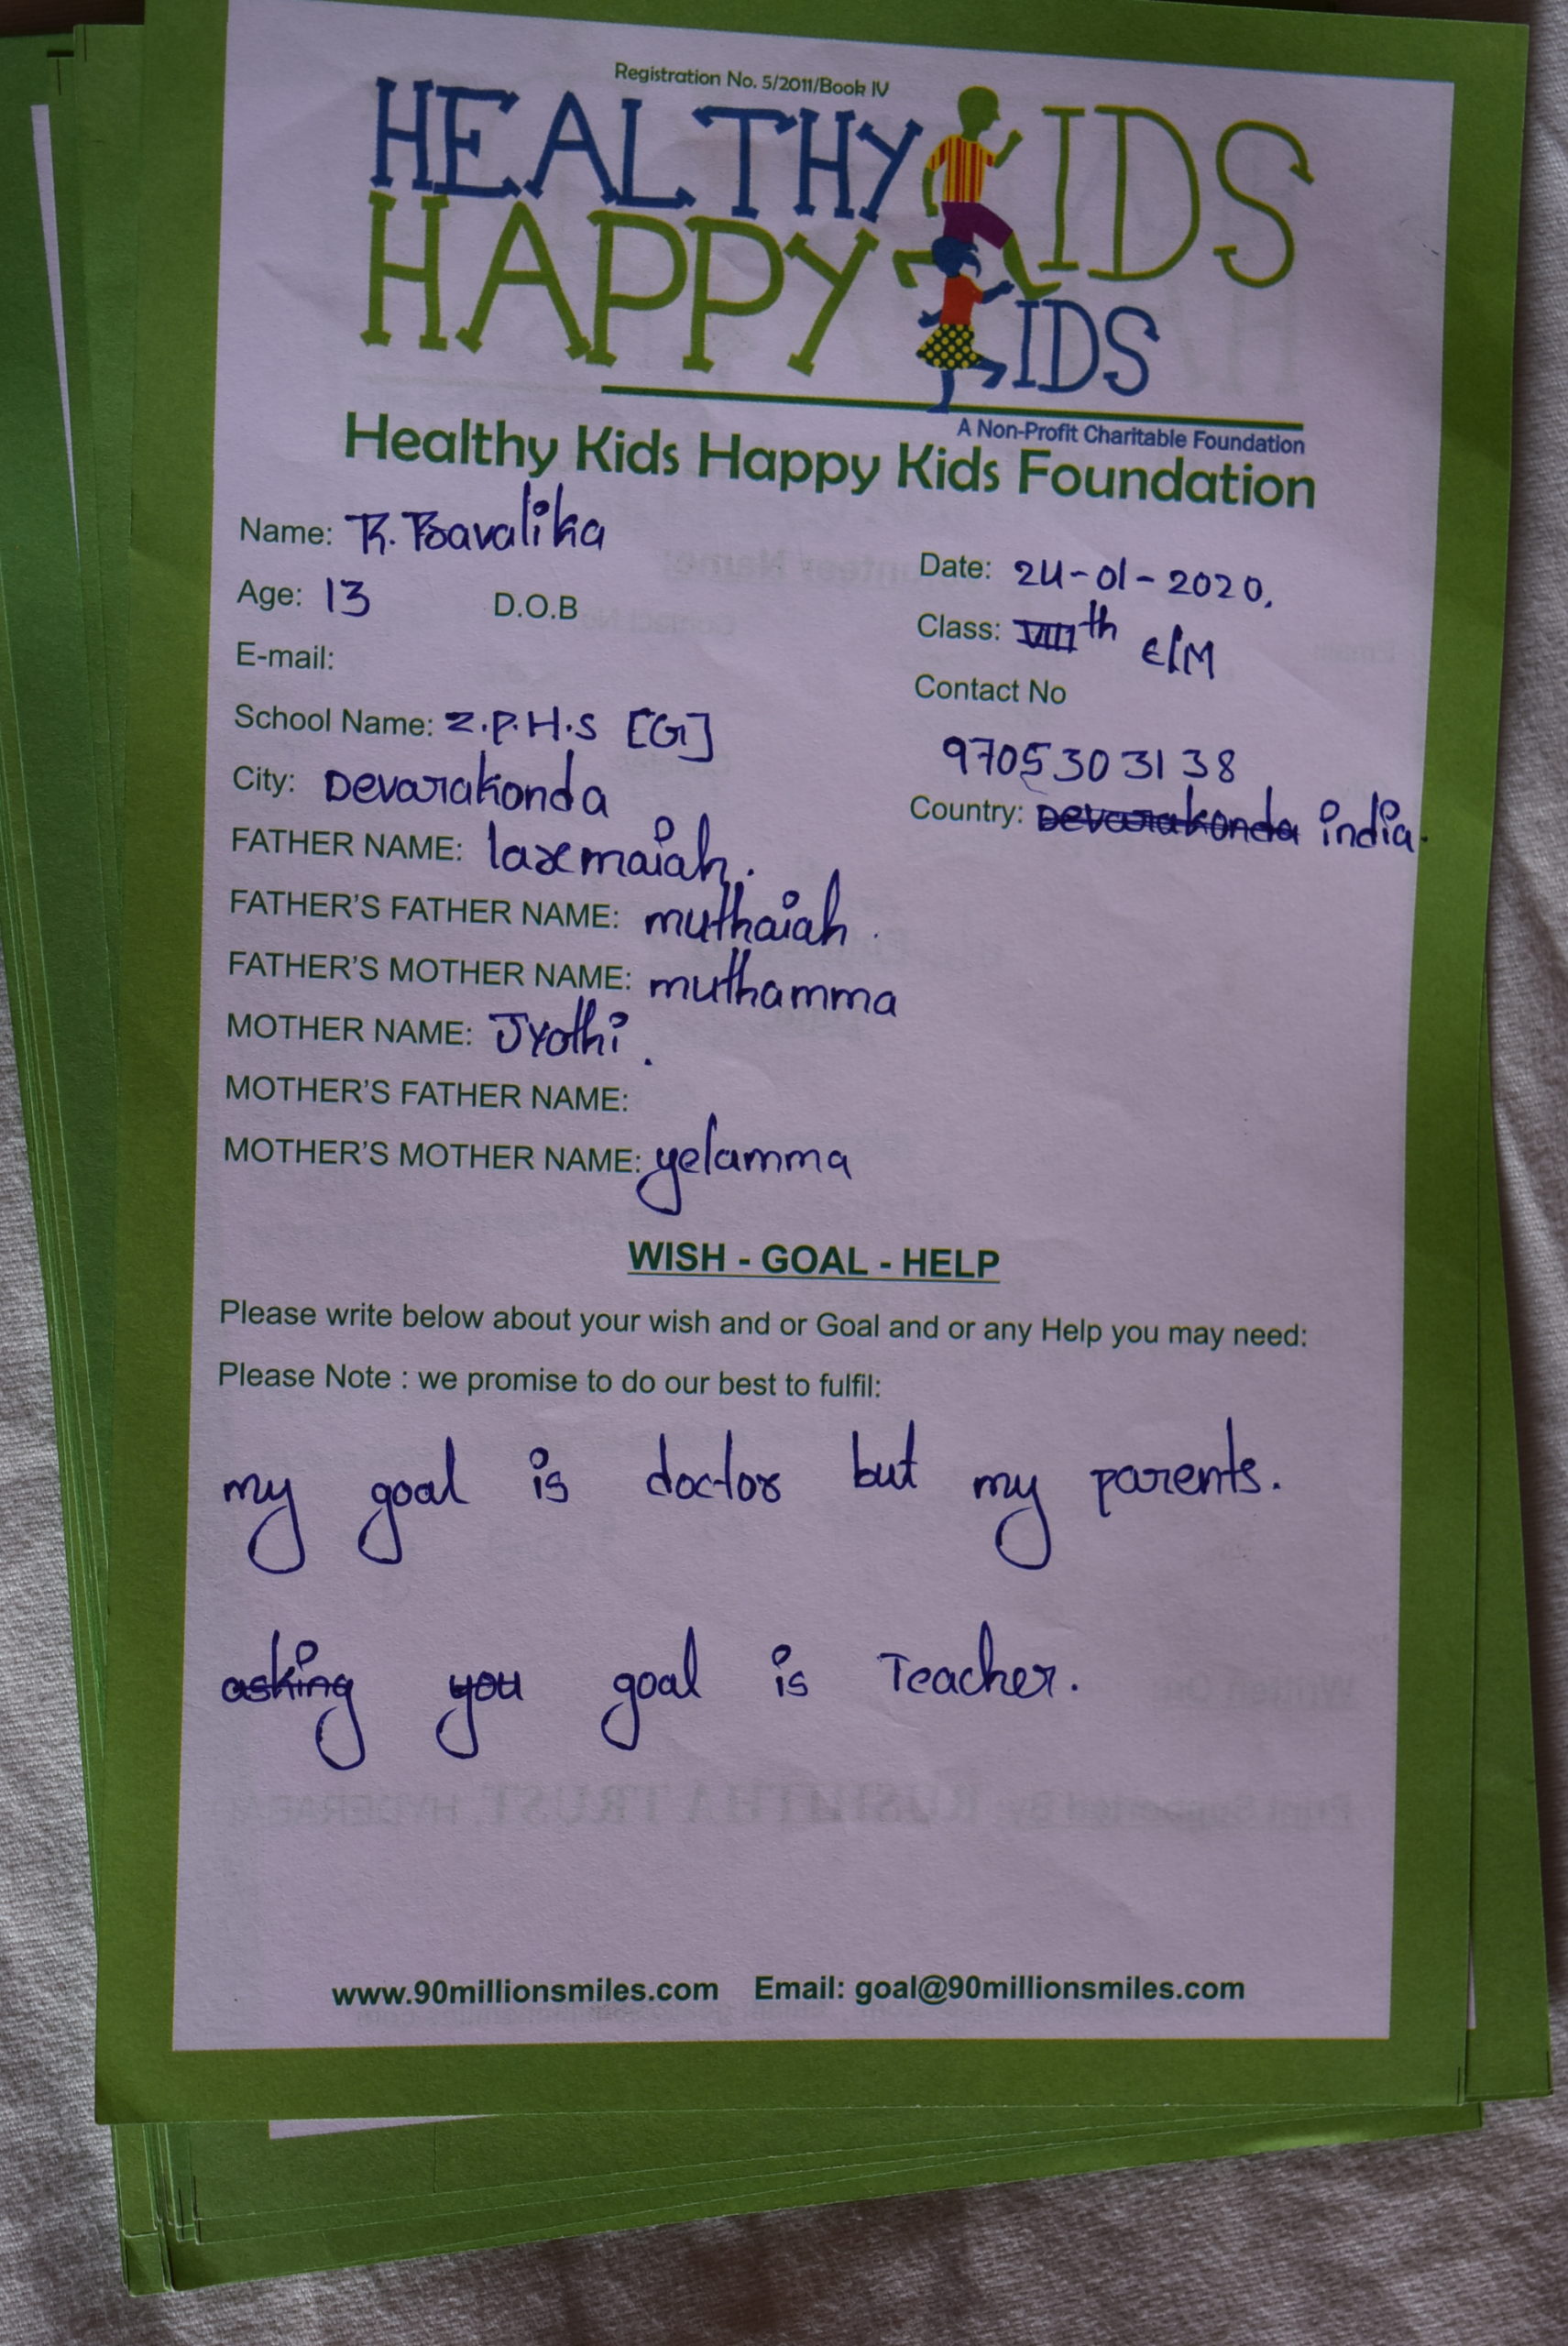 Registration No. 5/2011/Book IV
HEALTHY KIDS
HAPPY KIDS
A Non-Profit Charitable Foundation
Healthy Kids Happy Kids Foundation
Name: R. Bavalika
Date: 24-01-2020,
Age: 13 D.O.B
Class: VIIIth E/M
E-mail:
Contact No
School Name: Z.P.H.S [G]
9705303138
City: Devarakonda
Country: Devarakonda india.
FATHER NAME: laxmaiah.
FATHER'S FATHER NAME: muthaiah.
FATHER'S MOTHER NAME: muthamma
MOTHER NAME: Jyothi.
MOTHER'S FATHER NAME:
MOTHER'S MOTHER NAME: yelamma
WISH - GOAL - HELP
Please write below about your wish and or Goal and or any Help you may need:
Please Note : we promise to do our best to fulfil:
my goal is doctor but my parents.
asking you goal is Teacher.
www.90millionsmiles.com Email: goal@90millionsmiles.com